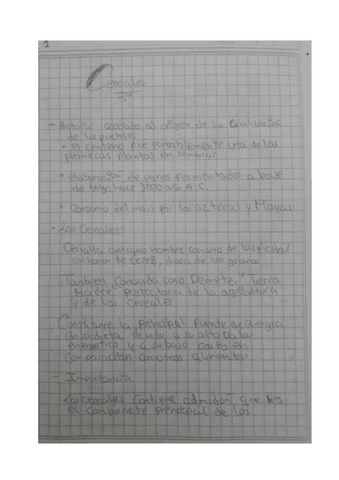 1
Cereales
- Historia asociado al origen de la civilización
de los pueblos
• El centeno fue probablemente una de las
primeras plantas en sembrar
• elaboración de panes fermentados a base
de trigo hace 3000 año A.C.
• Consumo del maíz por los aztecas y Mayas
- Los Cereales:
antiguo nombre romano de las fiestas
en honor de ceres, diosa de los granos
También Conocida como Demeter, "Tierra
Madre" Protectora de la agricultura
y de los cereales
Constituye la principal fuente de energía
de la dieta debido a su alto valor
energetico y a su bajo costo en
comparación con otros alimentos
- Importancia
Los cereales contiene almidon que es
el componente principal de los